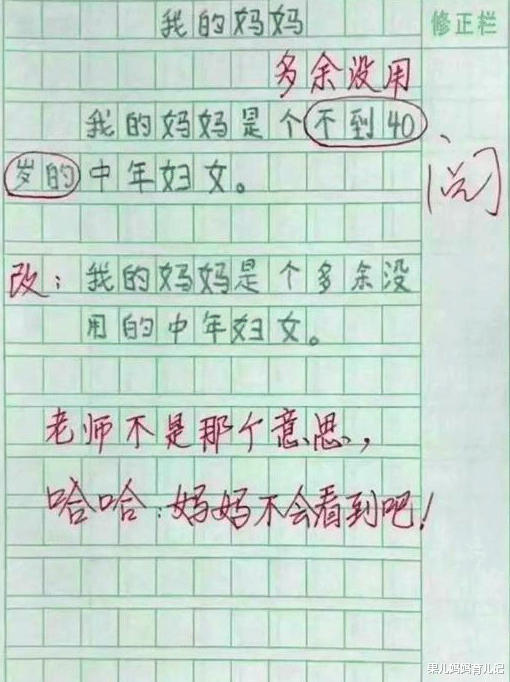 我的妈妈
修正栏
多余没用
我的妈妈是个不到40、
岁的中年妇女。
阅
改：我的妈妈是个多余没
用的中年妇女。
老师不是那个意思，
哈哈：妈妈不会看到吧！
果儿妈妈育儿记